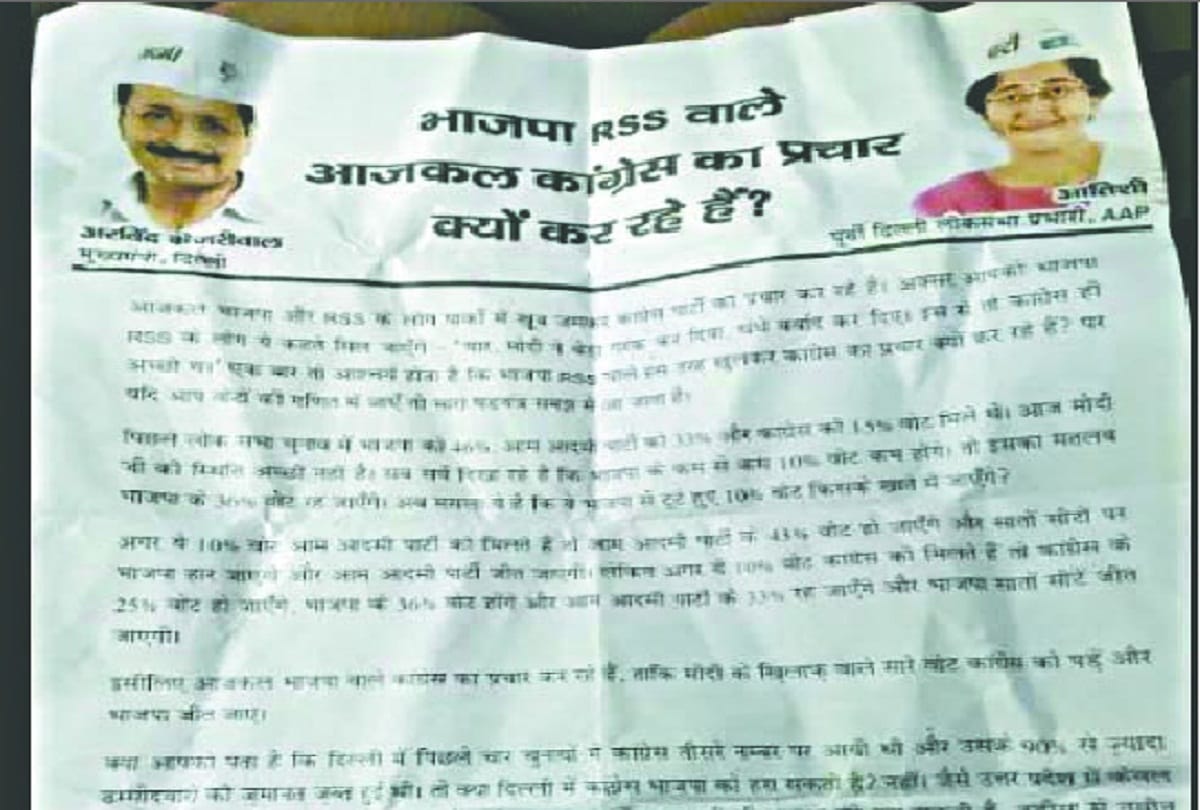 भाजपा RSS वाले
आजकल कांग्रेस का प्रचार
क्यों कर रहे हैं?
अरविंद केजरीवाल
मुख्यमंत्री, दिल्ली
आतिशी
पूर्वी दिल्ली लोकसभा प्रभारी, AAP
आजकल भाजपा और RSS के लोग पार्कों में खूब जमकर कांग्रेस पार्टी का प्रचार कर रहे हैं। अक्सर आपको भाजपा
RSS के लोग ये कहते मिल जाएँगे - 'यार, मोदी ने बेड़ा गरक कर दिया, धंधे बर्बाद कर दिए। इस से तो कांग्रेस ही
अच्छी थी' एक बार तो आश्चर्य होता है कि भाजपा RSS वाले इस तरह खुलकर कांग्रेस का प्रचार क्यों कर रहे हैं? पर
यदि आप वोटों की गणित में जाएँ तो सारा षडयंत्र समझ में आ जाता है।
पिछले लोक सभा चुनाव में भाजपा को 46%, आम आदमी पार्टी को 33% और कांग्रेस को 15% वोट मिले थे। आज मोदी
जी की स्थिति अच्छी नहीं है। सब सर्वे दिखा रहे हैं कि भाजपा के कम से कम 10% वोट कम होंगे। तो इसका मतलब
भाजपा के 36% वोट रह जाएँगे। अब मसला ये है कि ये भाजपा से टूटे हुए 10% वोट किसके खाते में जाएँगे?
अगर ये 10% वोट आम आदमी पार्टी को मिलते हैं तो आम आदमी पार्टी के 43% वोट हो जाएँगे और सातों सीटों पर
भाजपा हार जाएगी और आम आदमी पार्टी जीत जाएगी। लेकिन अगर ये 10% वोट कांग्रेस को मिलते हैं तो कांग्रेस के
25% वोट हो जाएँगे, भाजपा के 36% वोट होंगे और आम आदमी पार्टी के 33% रह जाएँगे और भाजपा सातों सीटें जीत
जाएगी।
इसीलिए आजकल भाजपा वाले कांग्रेस का प्रचार कर रहे हैं, ताकि मोदी के खिलाफ वाले सारे वोट कांग्रेस को पड़ें और
भाजपा जीत जाए।
क्या आपको पता है कि दिल्ली में पिछले चार चुनावों में कांग्रेस तीसरे नम्बर पर आयी थी और उसके 90% से ज़्यादा
उम्मीदवारों की जमानत जब्त हुई थी। तो क्या दिल्ली में कांग्रेस भाजपा को हरा सकती है? नहीं। जैसे उत्तर प्रदेश में केवल